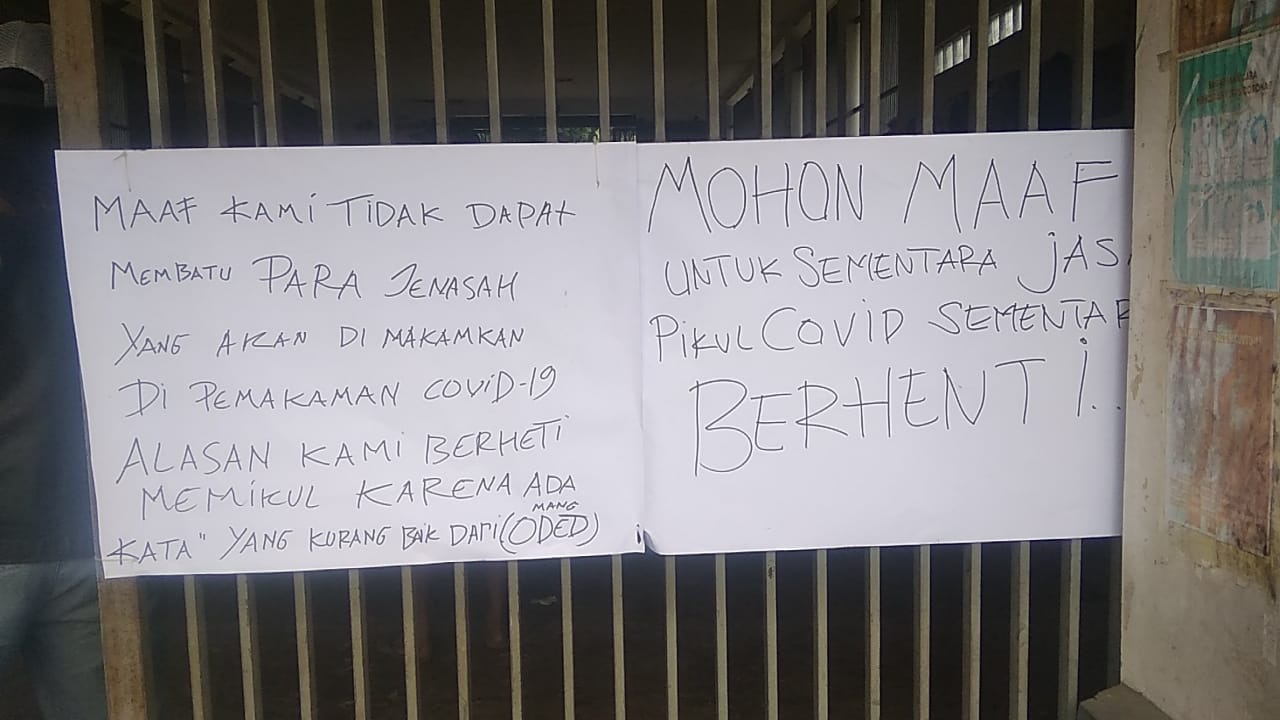 MAAF KAMI TIDAK DAPAT
MEMBATU PARA JENASAH
YANG AKAN DI MAKAMKAN
DI PEMAKAMAN COVID-19
ALASAN KAMI BERHETI
MEMIKUL KARENA ADA
KATA" YANG KURANG BAIK DARI (MANG ODED)
MOHON MAAF
UNTUK SEMENTARA JAS
PIKUL COVID SEMENTAR
BERHENTI..